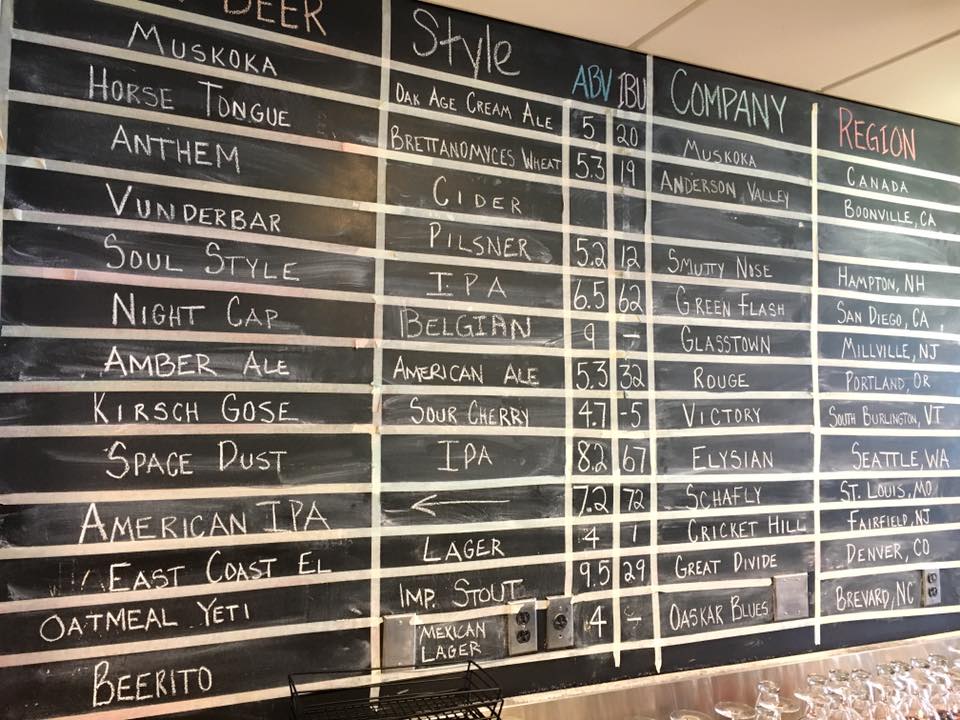 BEER Style ABV IBU COMPANY REGION
MUSKOKA OAK AGE CREAM ALE 5 20 MUSKOKA CANADA
HORSE TONGUE BRETTANOMYCES WHEAT 5.3 19 ANDERSON VALLEY BOONVILLE, CA
ANTHEM CIDER
VUNDERBAR PILSNER 5.2 12 SMUTTY NOSE HAMPTON, NH
SOUL STYLE IPA 6.5 62 GREEN FLASH SAN DIEGO, CA
NIGHT CAP BELGIAN 9 - GLASSTOWN MILLVILLE, NJ
AMBER ALE AMERICAN ALE 5.3 32 ROUGE PORTLAND, OR
KIRSCH GOSE SOUR CHERRY 4.7 -5 VICTORY SOUTH BURLINGTON, VT
SPACE DUST IPA 8.2 67 ELYSIAN SEATTLE, WA
AMERICAN IPA ← 7.2 72 SCHAFLY ST. LOUIS, MO
EAST COAST EL LAGER 4 1 CRICKET HILL FAIRFIELD, NJ
OATMEAL YETI IMP. STOUT 9.5 29 GREAT DIVIDE DENVER, CO
BEERITO MEXICAN LAGER 4 - OASKAR BLUES BREVARD, NC